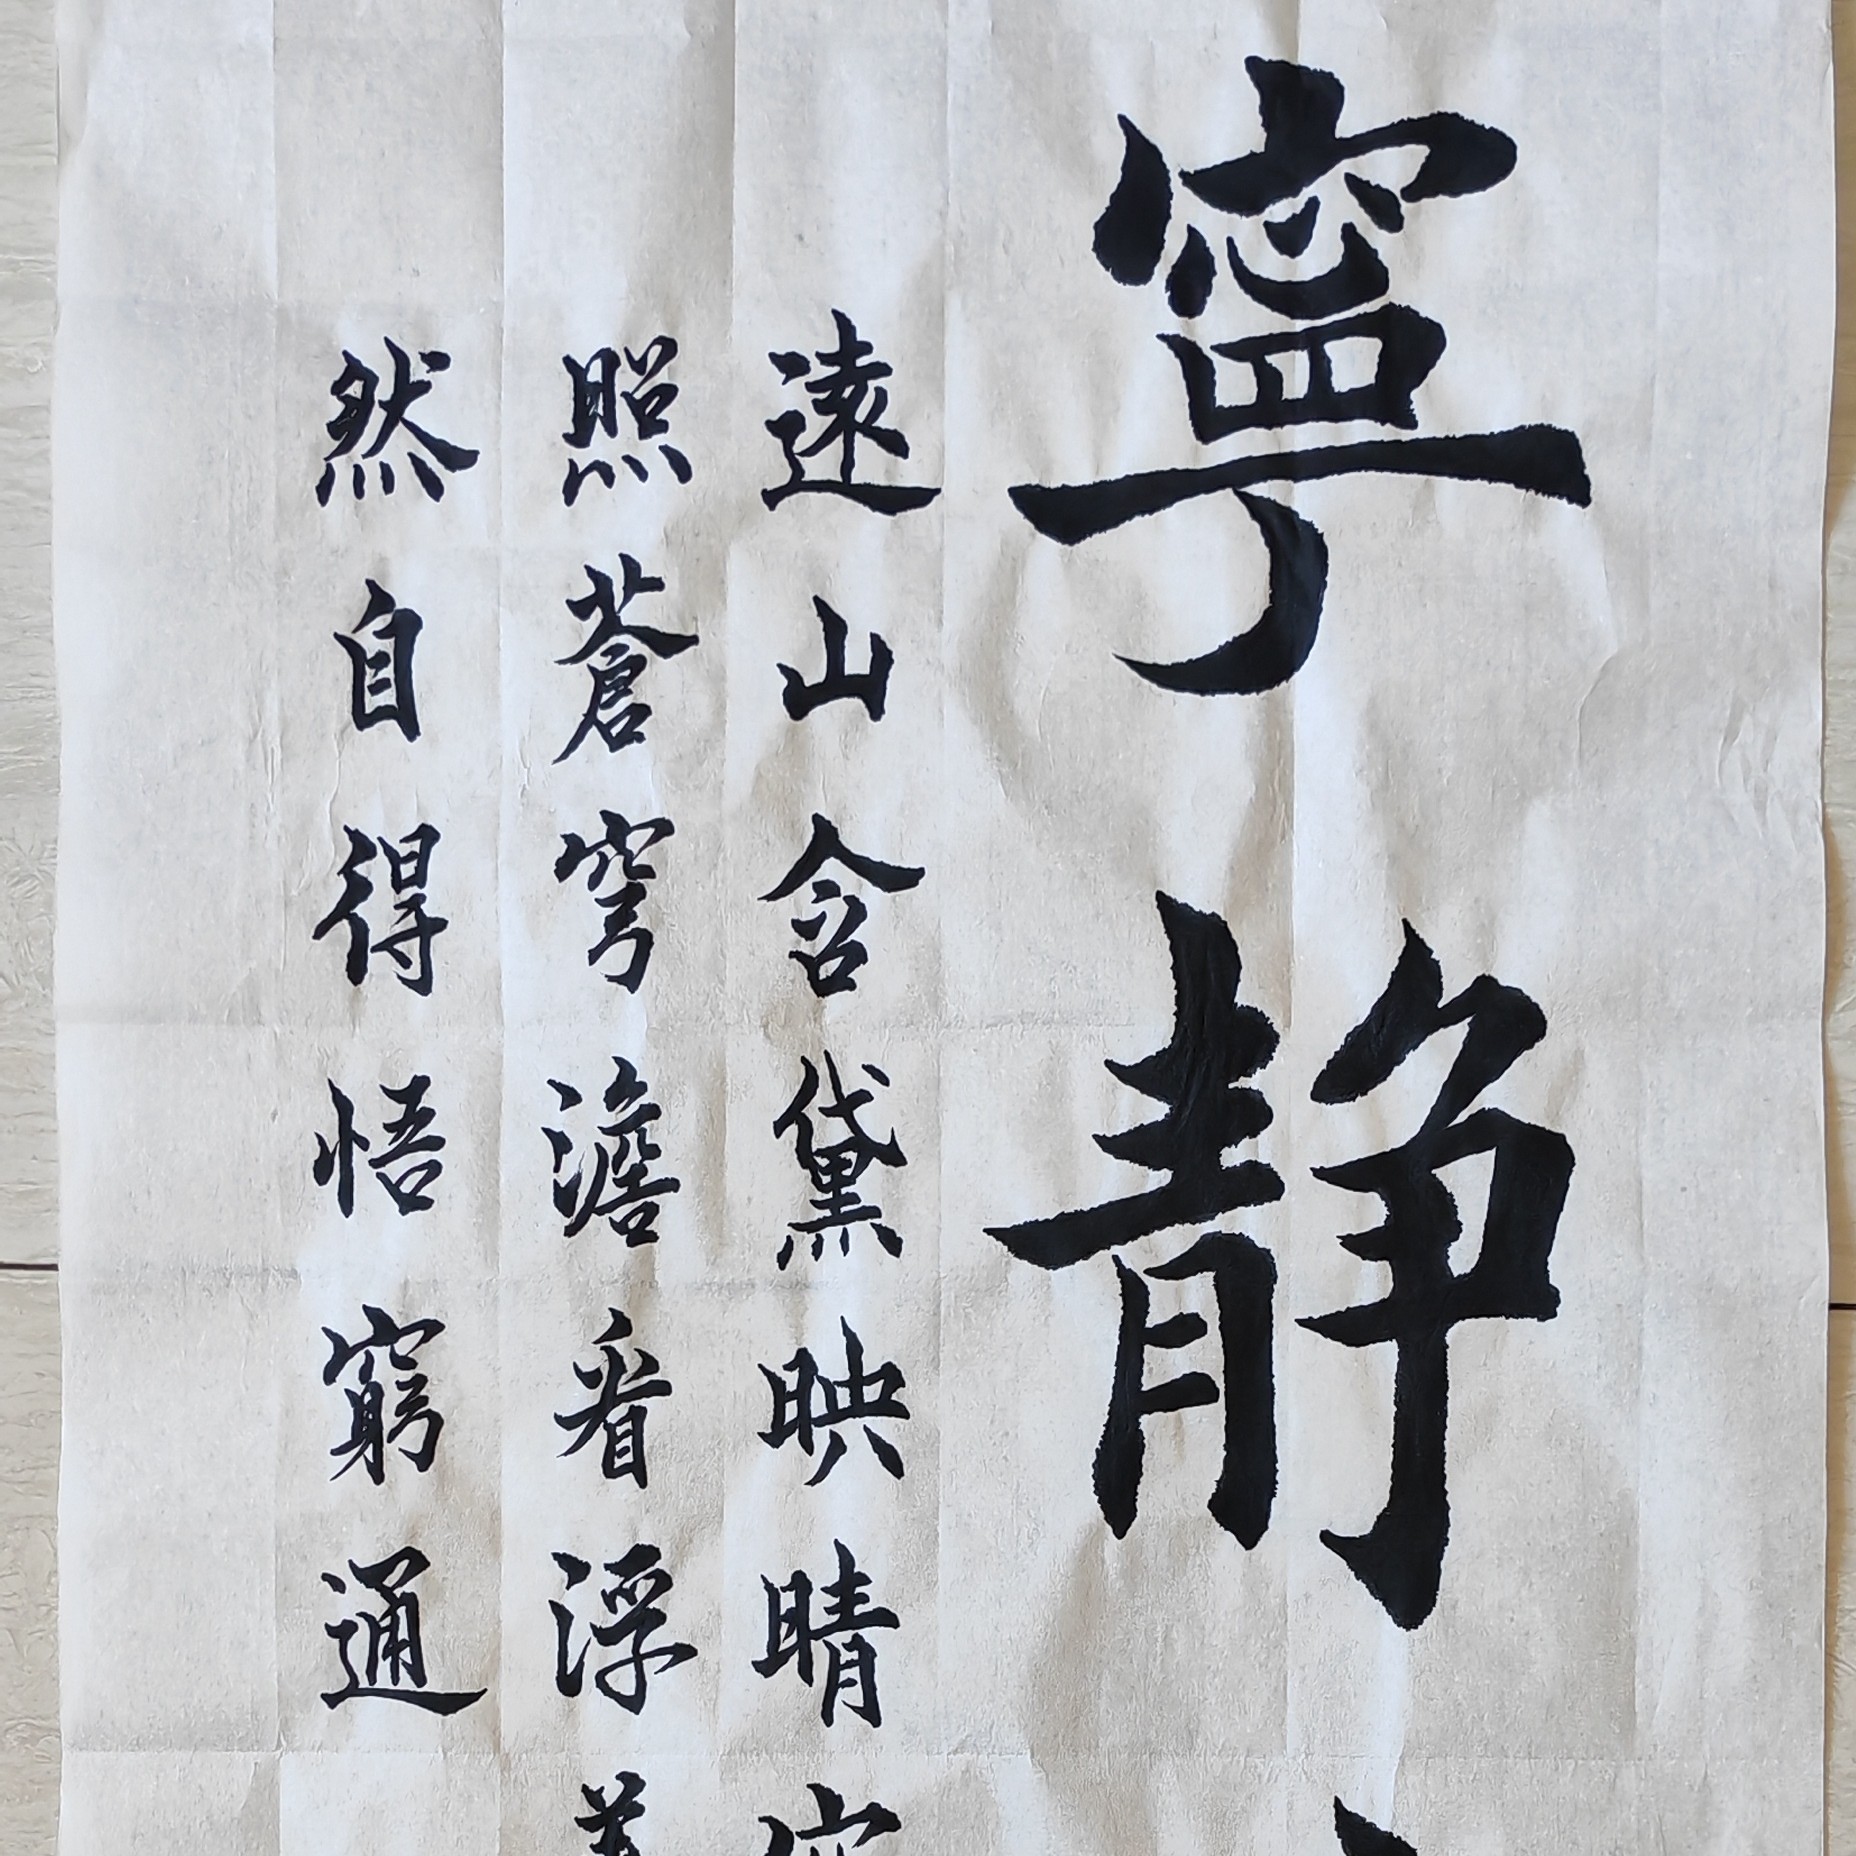 寧靜
遠山含黛映晴
照蒼穹澹看浮
然自得悟窮通